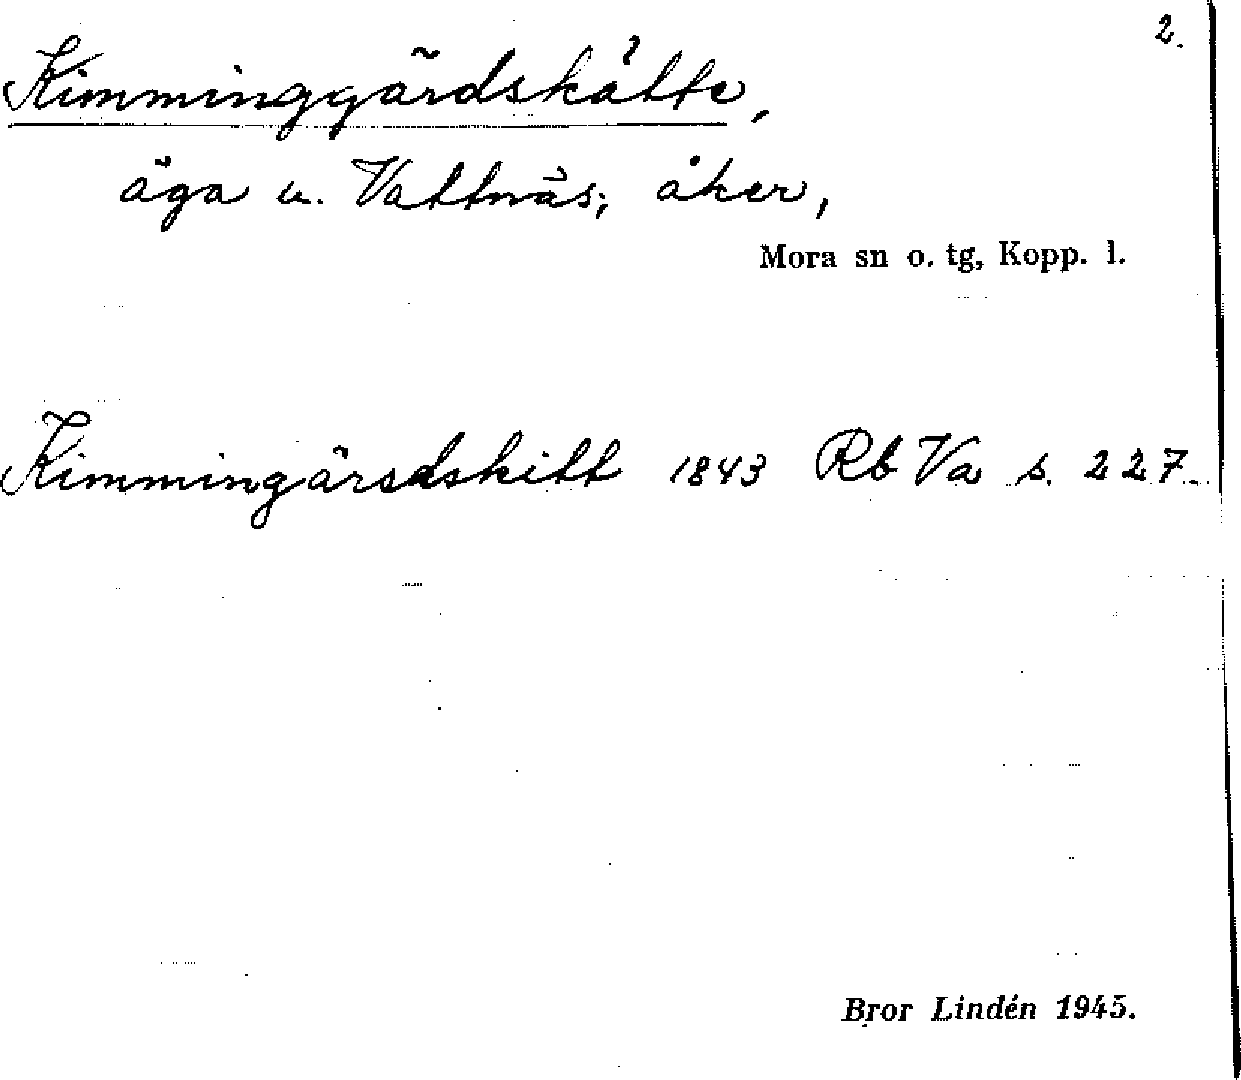 2.
Kimminggärdskätte,
äga u. Vattnäs; åker,
Mora sn o. tg, Kopp. l.
Kimmingärsdskitt 1843 Rb Va s. 227.
Bror Lindén 1945.